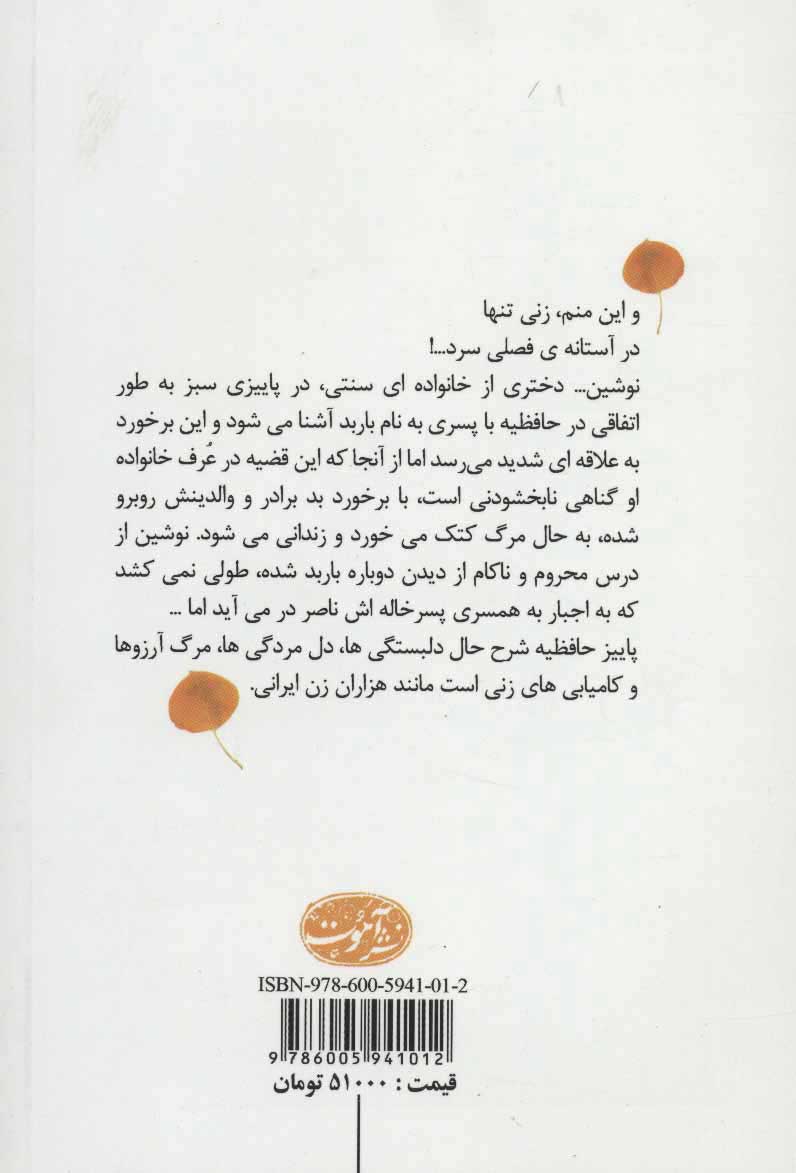 و این منم، زنی تنها
در آستانه ی فصلی سرد...!
نوشین... دختری از خانواده ای سنتی، در پاییزی سبز به طور
اتفاقی در حافظیه با پسری به نام باربد آشنا می شود و این برخورد
به علاقه ای شدید می‌رسد اما از آنجا که این قضیه در عُرف خانواده
او گناهی نابخشودنی است، با برخورد بد برادر و والدینش روبرو
شده، به حال مرگ کتک می خورد و زندانی می شود. نوشین از
درس محروم و ناکام از دیدن دوباره باربد شده، طولی نمی کشد
که به اجبار به همسری پسرخاله اش ناصر در می آید اما ...
پاییز حافظیه شرح حال دلبستگی ها، دل مردگی ها، مرگ آرزوها
و کامیابی های زنی است مانند هزاران زن ایرانی.
نشر آموت
ISBN-978-600-5941-01-2
9 786005 941012
قیمت : ۵۱۰۰۰ تومان